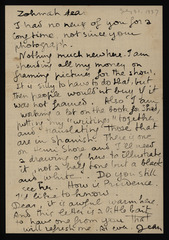 Zohmah dear
I had no news of you for a
long time, not since your
photograph.
Nothing much new here. I am
spending all my money on
framing pictures for the show.
It is silly to have to do that but
then people wouldn't buy if it
was not framed. Also I am
working a lot on the book to find
all my "writings" together
and translating those that
are in Spanish. There is one
on Venus Show and I'll need
a drawing of hers to illustrate
it, not a half tone but a black
and white. Do you still
see her. How is Providence
its like to know.
Dear, it is awful warm here
And this letter is a little bait
to have one from you that
will refresh me. As ever Jean